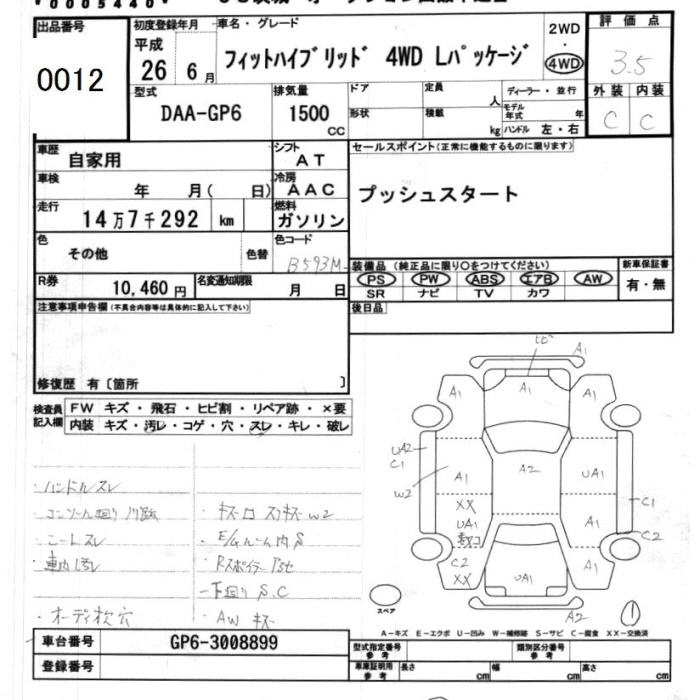 出品番号
0012
初度登録年月
平成
26 6月
車名・グレード
フィットハイブリッド 4WD Lパッケージ
2WD
・
4WD
評価点
3.5
外装 内装
C C
型式
DAA-GP6
排気量
1500
CC
ドア
形状
定員
人
積載
kg
ディーラー・並行
モデル
年式 年
ハンドル 左・右
車歴
自家用
シフト
AT
セールスポイント(正常に機能するものに限ります)
プッシュスタート
車検
年 月( 日)
冷房
AAC
走行
14万7千292 km
燃料
ガソリン
色
その他
色替
色コード
B593M
装備品 (純正品に限り○をつけてください)
PS PW ABS エアB AW
SR ナビ TV カワ
新車保証書
有・無
R券
10,460円
名変通知期限
月 日
後日品
注意事項申告欄(不具合内容等は具体的に記入して下さい)
修復歴 有〔箇所 〕
検査員
記入欄
FW キズ・飛石・ヒビ割・リペア跡・×要
内装 キズ・汚レ・コゲ・穴・スレ・キレ・破レ
・ハンドルスレ
・シートスレ
・車内汚レ
・オーディオ欠穴
・E/gルーム内S
・下廻りS.C
・AWキズ
A1
A1
A1
A1
UA2
C1
W2
A1
A2
UA1
XX
UA1
A1
C1
C2
C2
XX
UA1
A1
A2
スペア
1
A-キズ E-エクボ U-凹み W-補修跡 S-サビ C-腐食 XX-交換済
車台番号
GP6-3008899
登録番号
型式指定番号
参考
類別区分番号
参考
車庫証明用
参考
長さ cm 幅 cm 高さ cm